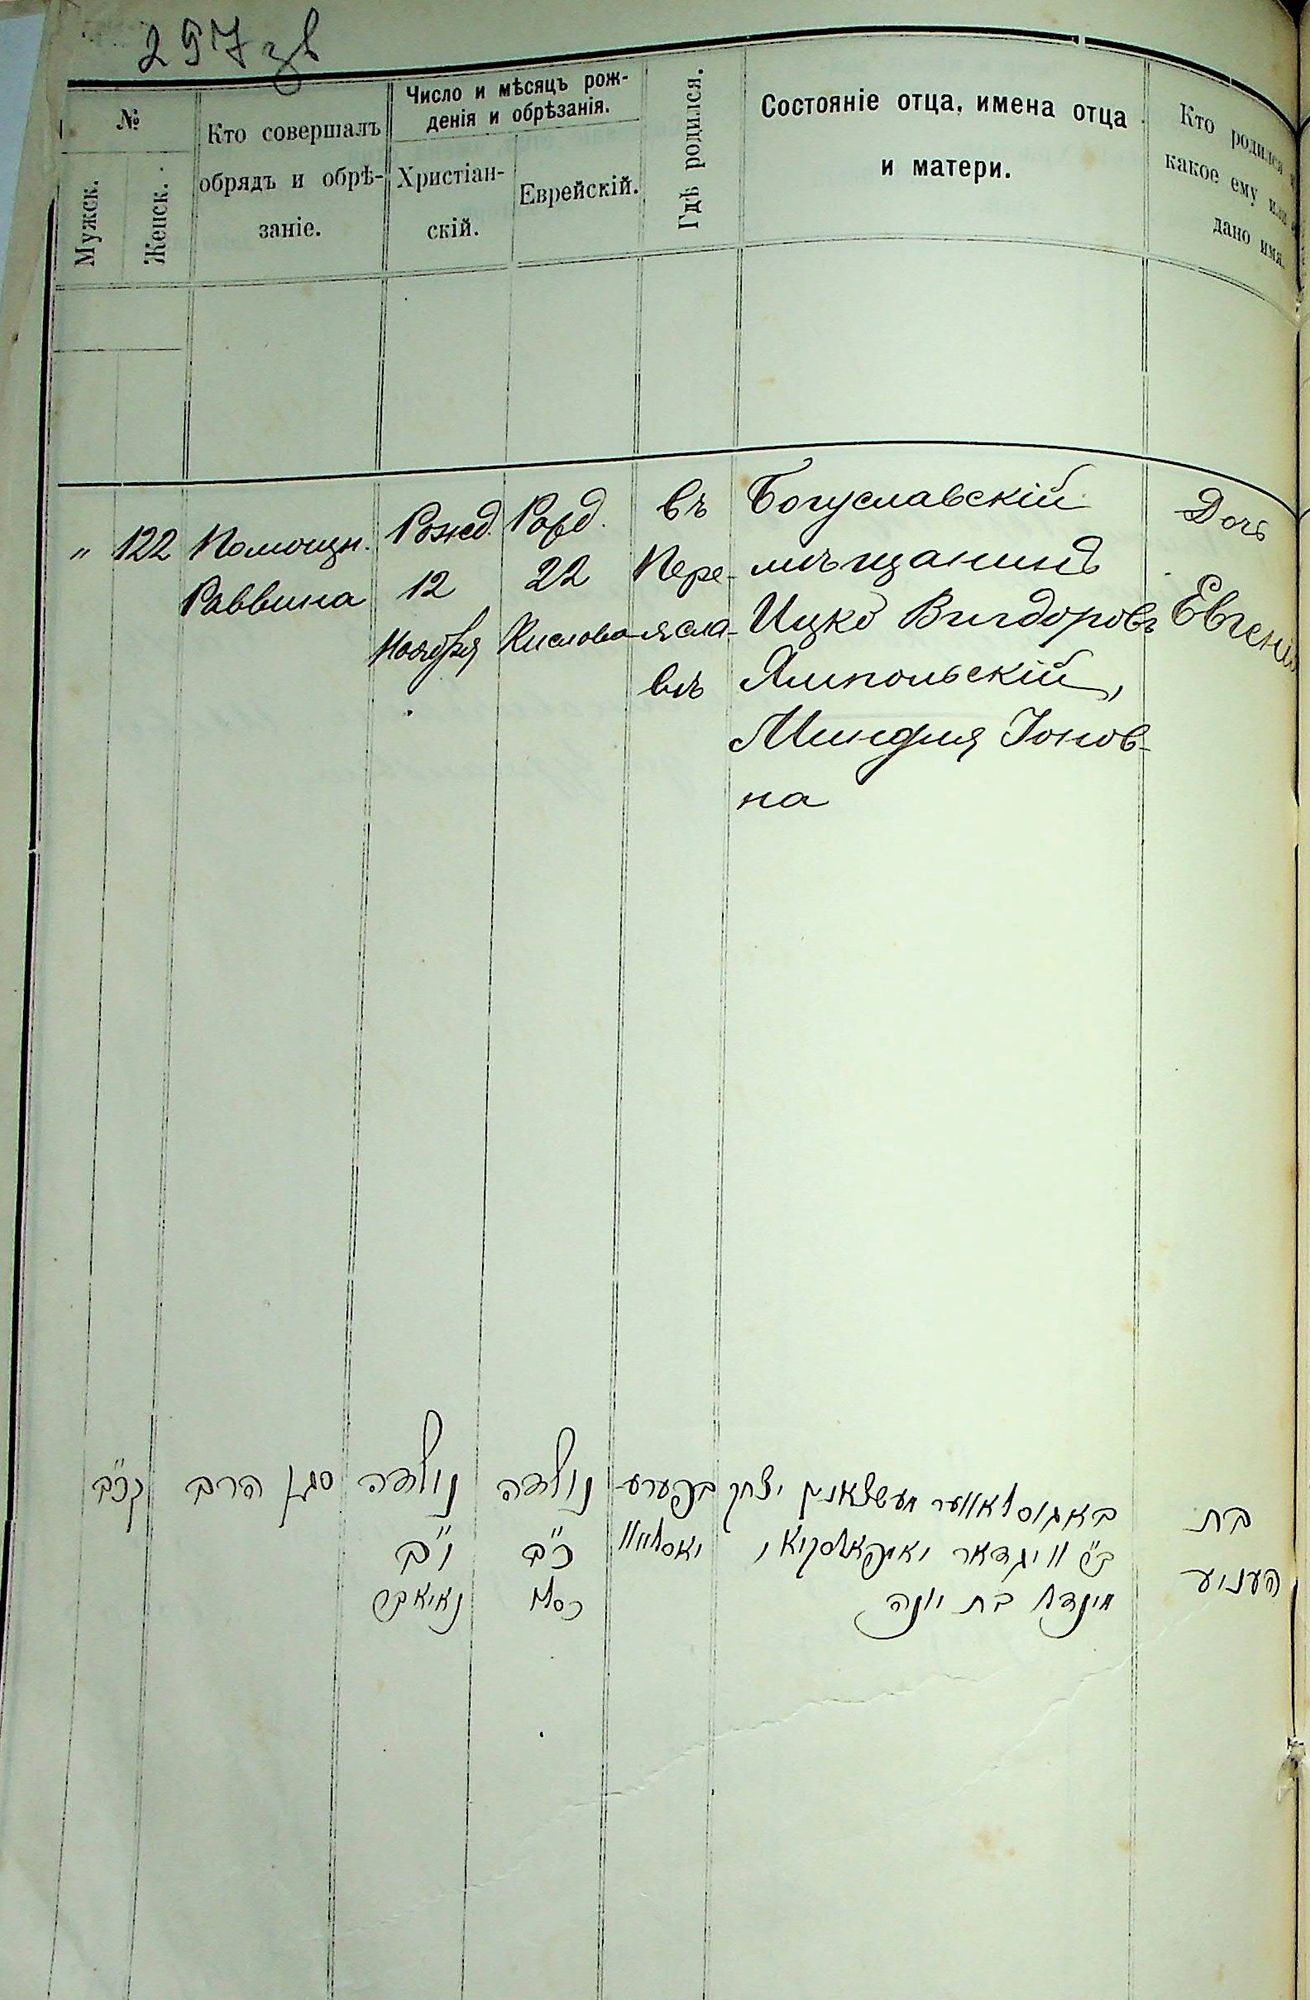 297 зв
№
Мужск.
Женск.
Кто совершалъ
обрядъ и обрѣ-
заніе.
Число и мѣсяцъ рож-
денія и обрѣзанія.
Христіан-
скій.
Еврейскій.
Гдѣ родился.
Состояніе отца, имена отца
и матери.
Кто родился
какое ему или
дано имя.
" 122
Помощн.
Раввина
Рожд.
12
Ноября
Рожд.
22
Кислова
въ
Пере-
ясла-
влѣ
Богуславскій
мѣщанинъ
Ицко Вигдоровъ
Ямпольскій,
Миндля Іонов-
на
Дочь
Евгенія
קכ״ב
סגן הרב
נולדה
י״ב
נאיאבר
נולדה
כ״ב
כסלו
בפערע
יאסלאוו
באגוסלאווער מעשצאנין יצחק
ב״ר וויגדאר יאמפאלסקי
מינדל בת יונה
בת
העניע